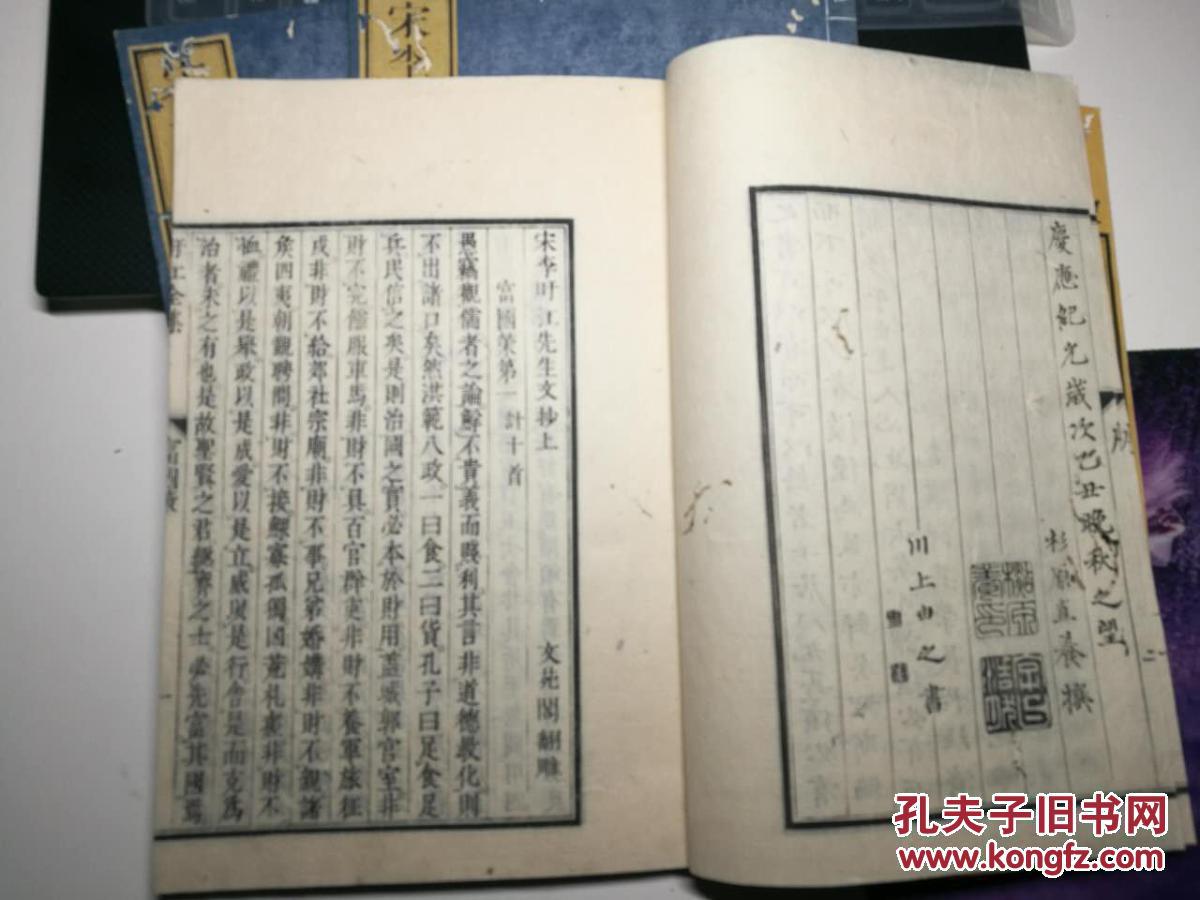 宋本
慶應紀元歲次乙丑晚秋之望
杉原直養撰
川上由之書
宋李盱江先生文抄上
文苑閣翻雕
富國策第一 計十首
愚竊觀儒者之論鮮不貴義而賤利其言非道德教化則
不出諸口矣然洪範八政一曰食二曰貨孔子曰足食足
兵民信之矣是則治國之實必本於財用蓋城郭宮室非
財不完羞服車馬非財不具百官群吏非財不養軍旅征
戍非財不給郊社宗廟非財不事兄弟婚媾非財不親諸
矦四夷朝覲聘問非財不接鰥寡孤獨凶荒札瘥非財不
恤禮以是舉政以是成愛以是立威以是行舍是而克為
治者未之有也是故聖賢之君經濟之士必先富其國焉
盱江全集
富國策
一
孔夫子旧书网
www.kongfz.com